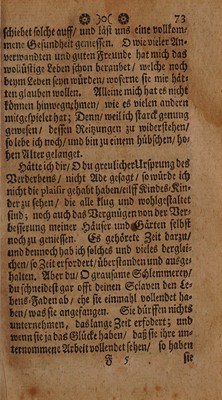 )o( 73
schiebet solche auff/ und läst uns eine vollkom-
mene Gesundheit geniessen. O wie vieler An-
verwandten und guten Freunde hat mich das
wollüstige Leben schon beraubet/ welche noch
beym Leben seyn würden/ woferne sie mir hät-
ten glauben wollen. Alleine mich hat es nicht
können hinwegnehmen/ wie es vielen andern
mitgespielet hat; Denn/ weil ich starck genung
gewesen/ dessen Reitzungen zu widerstehen/
so lebe ich noch/ und bin zu einem hübschen/ ho-
hen Alter gelanget.
Hätte ich dir/ O du greulicher Ursprung des
Verderbens/ nicht Ade gesagt/ so würde ich
nicht die plaisir gehabt haben/ eilff Kindes-Kin-
der zu sehen/ die alle klug und wohlgestaltet
sind; noch auch das Vergnügen von der Ver-
besserung meiner Häuser und Gärten selbst
noch zu geniessen. Es gehörete Zeit darzu/
und dennoch hab ich solches und vieles derglei-
chen/ so Zeit erfordert/ überstanden und ausge-
halten. Aber du/ O grausame Schlemmerey/
du schneidest gar offt deinen Sclaven den Le-
bens-Faden ab/ ehe sie einmahl vollendet ha-
ben/ was sie angefangen. Sie dürffen nichts
unternehmen, das lange Zeit erfodert; und
wenn sie ja das Glücke haben/ daß sie ihre un-
ternommene Arbeit vollendet sehen/ so haben
F 5 sie